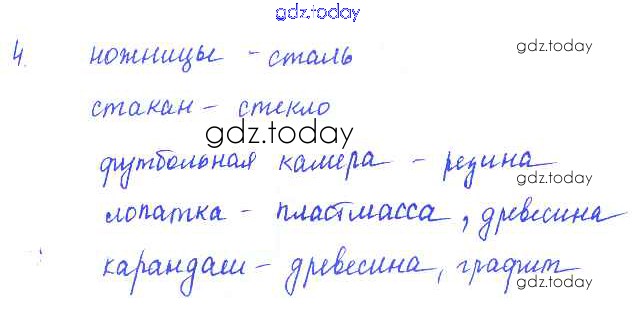 gdz.today
4. ножницы - сталь
gdz.today
стакан - стекло
gdz.today
футбольная камера - резина
gdz.today
лопатка - пластмасса, древесина
карандаш - древесина, графит
gdz.today